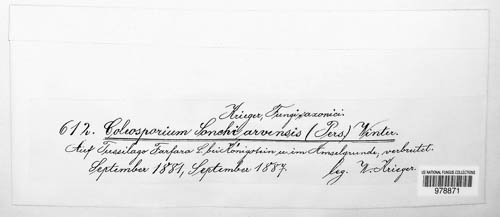 Krieger, Fungi saxonici.
612. Coleosporium Sonchi arvensis (Pers.) Winter.
Auf Tussilago Farfara L. bei Königstein u. im Amselgrunde, verbreitet.
September 1881, September 1887. leg. W. Krieger.
US NATIONAL FUNGUS COLLECTIONS
978871